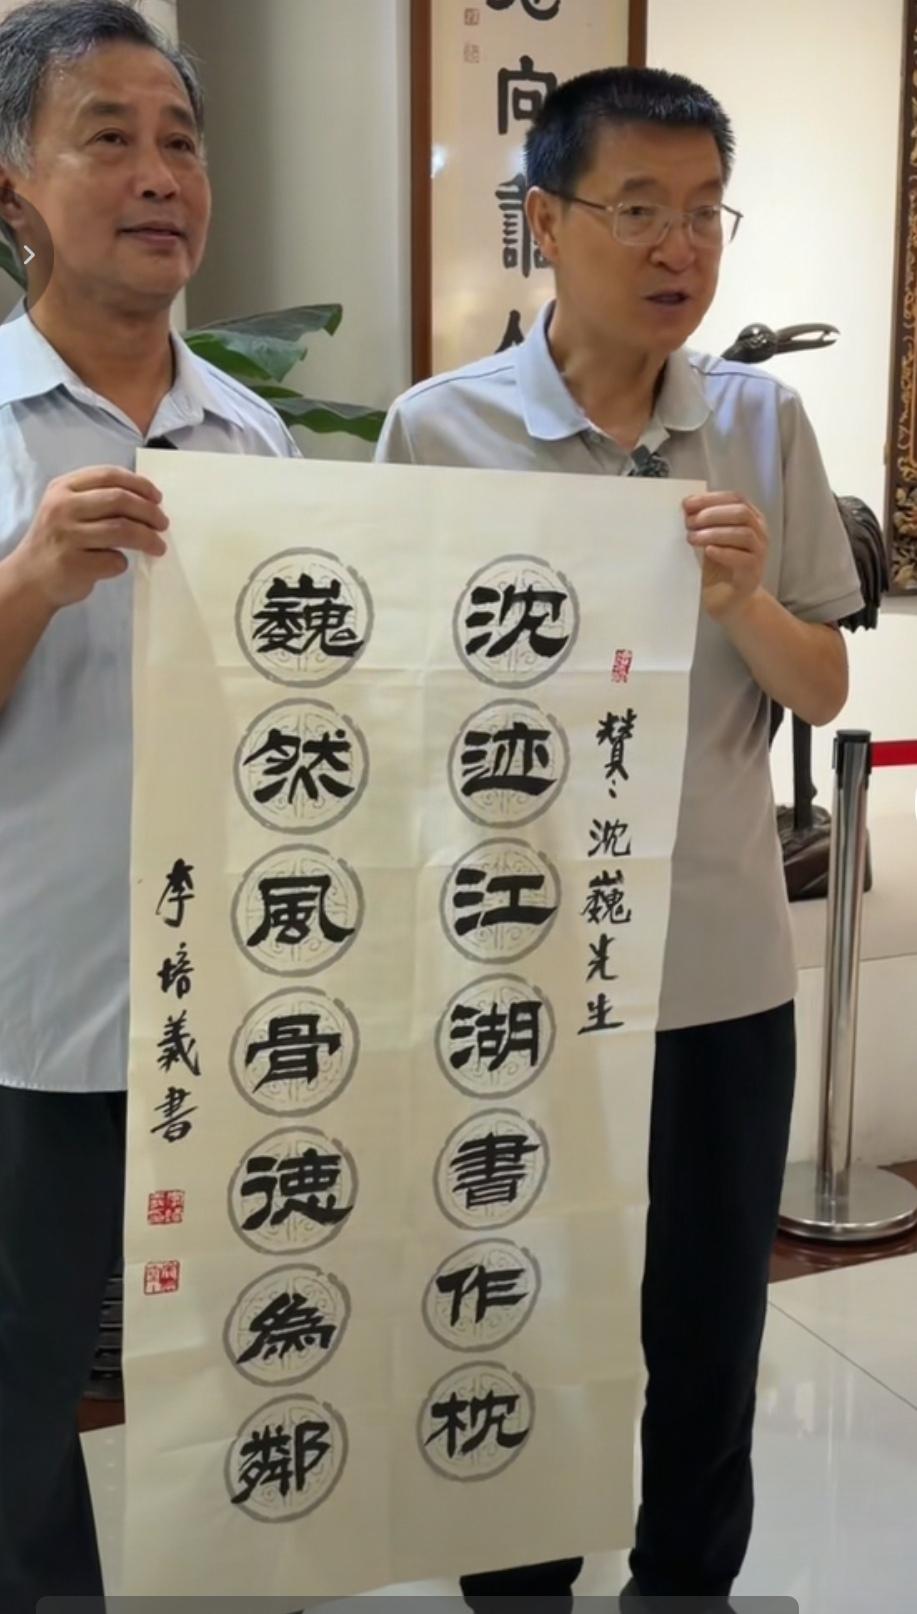 赞:沈巍先生
沈迹江湖書作枕
巍然風骨德為鄰
李培義書
向謳人